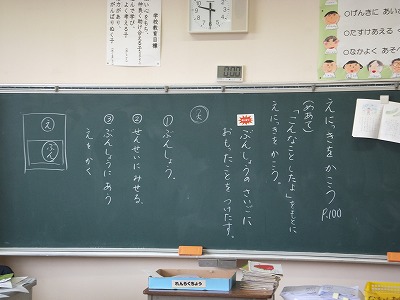 学校教育目標
○げんきに あい
○たすけあえる
○なかよく あそ
えにっきをかこう P.100
めあて
「こんなことしたよ」をもとに
えにっきをかこう。
ぶんしょうのさいごに
おもったことをつけたす。
①ぶんしょう。
②せんせいにみせる。
③ぶんしょうにあう
えをかく
え
ぶん
れんらくちょう